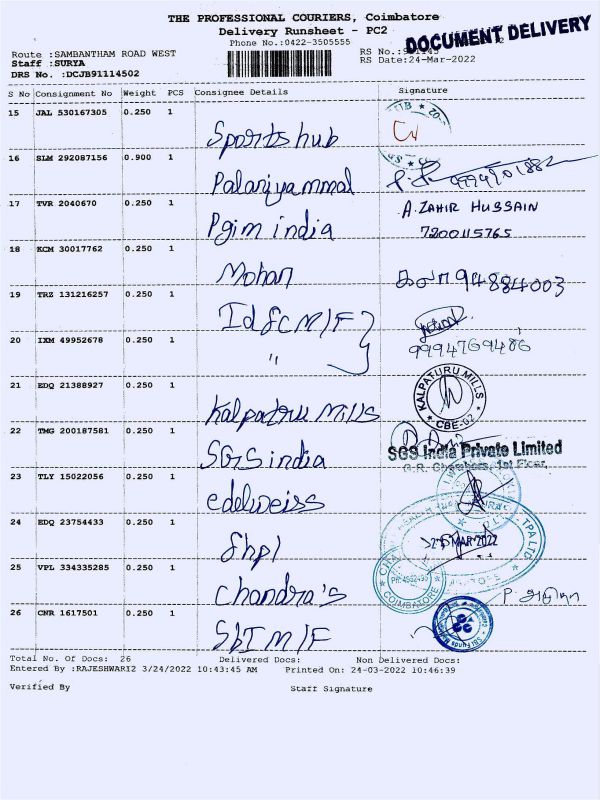 THE PROFESSIONAL COURIERS, Coimbatore
Delivery Runsheet - PC2
Phone No.:0422-3505555
DOCUMENT DELIVERY
Route :SAMBANTHAM ROAD WEST
Staff :SURYA
RS Date:24-Mar-2022
DRS No. :DCJB91114502
S No Consignment No Weight PCS Consignee Details Signature
15 JAL 530167305 0.250 1
Sports hub
16 SLM 292087156 0.900 1
Palaniyammal
17 TVR 2040670 0.250 1 A. ZAHIR HUSSAIN
Pgim india 7200115765
18 KCM 30017762 0.250 1
Mohan 94884003
19 TRZ 131216257 0.250 1
Idfc M/F
20 IXM 49952678 0.250 1 9994769486
"
21 EDQ 21388927 0.250 1 KALPATURU MILLS
CBE-02
Kalpatru Mills
22 TMG 200187581 0.250 1
SGS India Private Limited
G.R. Chambers, 1st Floor,
SGS india
23 TLY 15022056 0.250 1
edelweiss
24 EDQ 23754433 0.250 1
MAR 2022
Shpl
25 VPL 334335285 0.250 1
COIMBATORE
Chandra's
26 CNR 1617501 0.250 1
SbI M/F
Total No. Of Docs: 26 Delivered Docs: Non Delivered Docs:
Entered By :RAJESHWARI2 3/24/2022 10:43:45 AM Printed On: 24-03-2022 10:46:39
Verified By Staff Signature